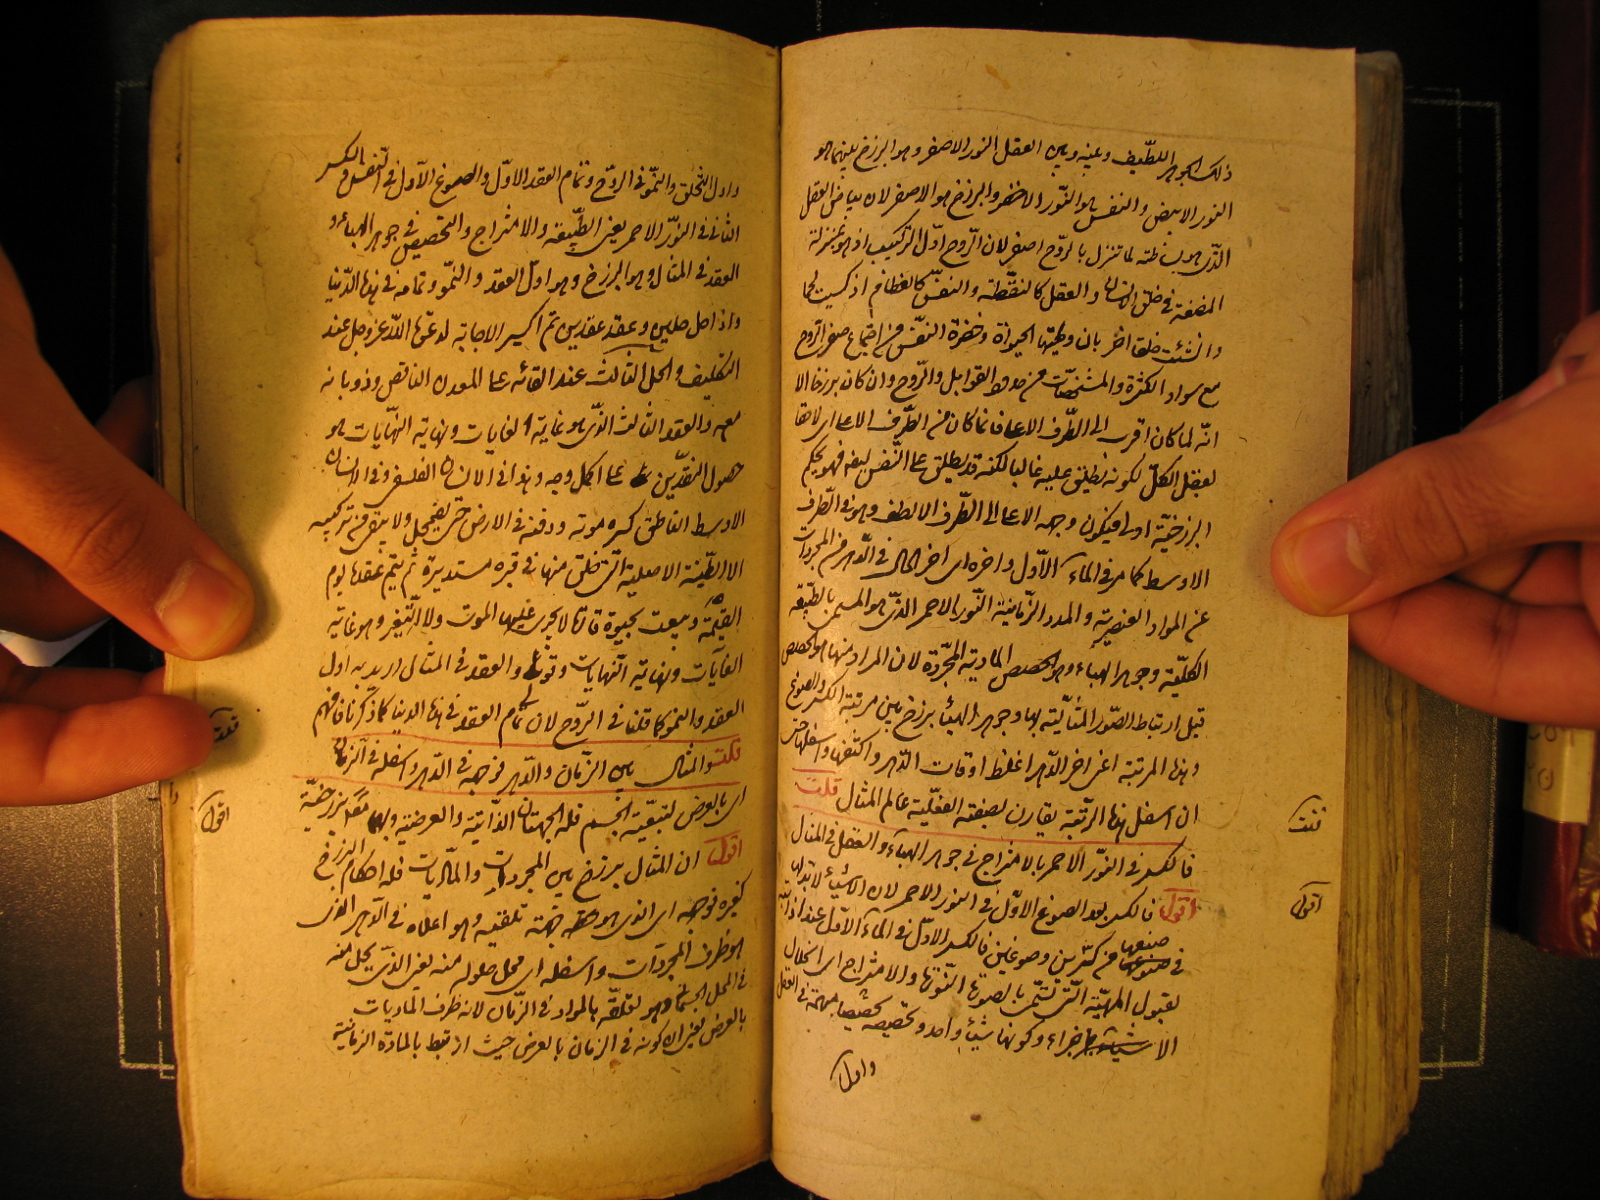 ذلك الجوهر اللطيف وعينه وبين العقل النور الاصفر وهو البرزخ بينهما هو
النور الابيض والنفس هو النور الاخضر والبرزخ هو الاصفر لان بياض العقل
الذي هو بساطته لما تنزل بالروح اصفر لان الروح اول التركيب اذ هو بمنزلة
المضغة في خلق الانسان والعقل كالنطفة والنفس كالعظام اذ كسيت لحما
وانشئت خلقا اخر بان ولجتها الحيوة وخضرة النفس من اجتماع صفرة الروح
مع سواد الكثرة والمشخصات من حدود القوابل والروح وان كان برزخا الا
انه لما كان اقرب الى الطرف الاعلى فانما كان من الطرف الاعلى لاحقا
لعقل الكل لكونه يطلق عليه غالبا لكنه قد يطلق على النفس ايضا فهو بحكم
البرزخية اولى فيكون وجهه الاعلى الى الطرف الالطف وهو في الطرف
الاوسط كما مر في الماء الاول واخره اى اخر الحال في الدهر من المجردات
عن المواد العنصرية والمدد الزمانية النور الاحمر الذي هو المسمى بالطبيعة
الكلية وجوهر الهباء وهو الحصص المادية المجردة لان المراد منها هو الحصص
قبل ارتباط الصور المثالية بها وجوهر الهباء برزخ بين مرتبة الكسر والصوغ
وهذا المرتبة اعنى اخر الدهر اغلظ اوقات الدهر واكثفها واسفلها حتى
ان اسفل هذا الرتبة يقارن بصفته الفعلية عالم المثال قلت
فالكسر في النور الاحمر بالامتزاج في جوهر الهباء والعقد في المثال
اقول فالكسر بعد الصوغ الاول في النور الاحمر لان الاشياء لابد
في صنعها من كسرين وصوغين فالكسر الاول في الماء الاول عند اذابته
لقبول المهية التى تسمى بالصورة النوعية والامتزاج اى انحلال
الاجزاء وكونها شيئا واحد وتخصيصه تخصيصا مبهمة في العقل
واول
قلت
اقول
واول التخلق والنمو في الروح وتمام العقد الاول والصوغ الاول في النفس والكسر
الثاني في النور الاحمر يعني الطبيعة والامتزاج والتخصيص في جوهر الهباء و
العقد في المثال وهو البرزخ وهو اول العقد والنمو وتمامه في هذا الدنيا
واذا حل حلين وعقد عقدين تم اكسير الاجابة لدعوة الله عز وجل عند
التكليف والحل الثالث عند القائه على المعدن الناقص وذوبانه
معه والعقد الثالث الذي هو غاية الغايات ونهاية النهايات هو
حصول النقدين على اكمل وجه وهذا في الانسان الفلسفي وفي الانسان
الاوسط الناطق كسره موته ودفنه في الارض حتى يضمحل ولا يبقى من تركيبه
الا الطينة الاصلية التى خلق منها في قبره مستديرة ثم يتم عقدها يوم
القيمة ويبعث بحيوة قارة لا يجرى عليها الموت ولا التغير وهو غاية
الغايات ونهاية النهايات وقولى والعقد في المثال اريد به اول
العقد والنمو كما قلنا في الروح لان تمام العقد في هذه الدنيا كما ذكرنا فافهم
قلت والمثال بين الزمان والدهر فوجهه في الدهر واسفله في الزمان
اى بالعرض لتبعيته الجسم فله الجهتان الذاتية والعرضية وبهما تمت برزخيته
اقول ان المثال برزخ بين المجردات والماديات فله احكام البرزخ
كغيره فوجهه اى الذي هو جهة تلقيه وهو اعلاه في الدهر الذي
هو ظرف المجردات واسفله اى محل حلوله منه يعنى الذي يحل منه
في المحل الجسمانى وهو تعلقه بالمواد في الزمان لانه ظرف الماديات
بالعرض يعنى ان كونه في الزمان بالعرض حيث ارتبط بالمادة الزمانية
قلت
اقول